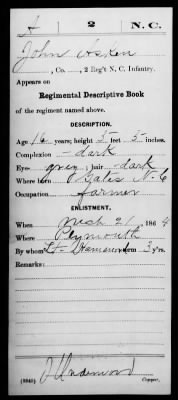 A 2 N.C.
John Asken
, Co. , 2 Reg't N. C. Infantry.
Appears on
Regimental Descriptive Book
of the regiment named above.
DESCRIPTION.
Age 16 years; height 5 feet 5 inches.
Complexion dark
Eyes grey; hair dark
Where born Gates N. C
Occupation farmer
ENLISTMENT.
When Mch 21, 1864
Where Plymouth
By whom Lt term 3 y'rs.
Remarks:
J Underwood
Copyist.